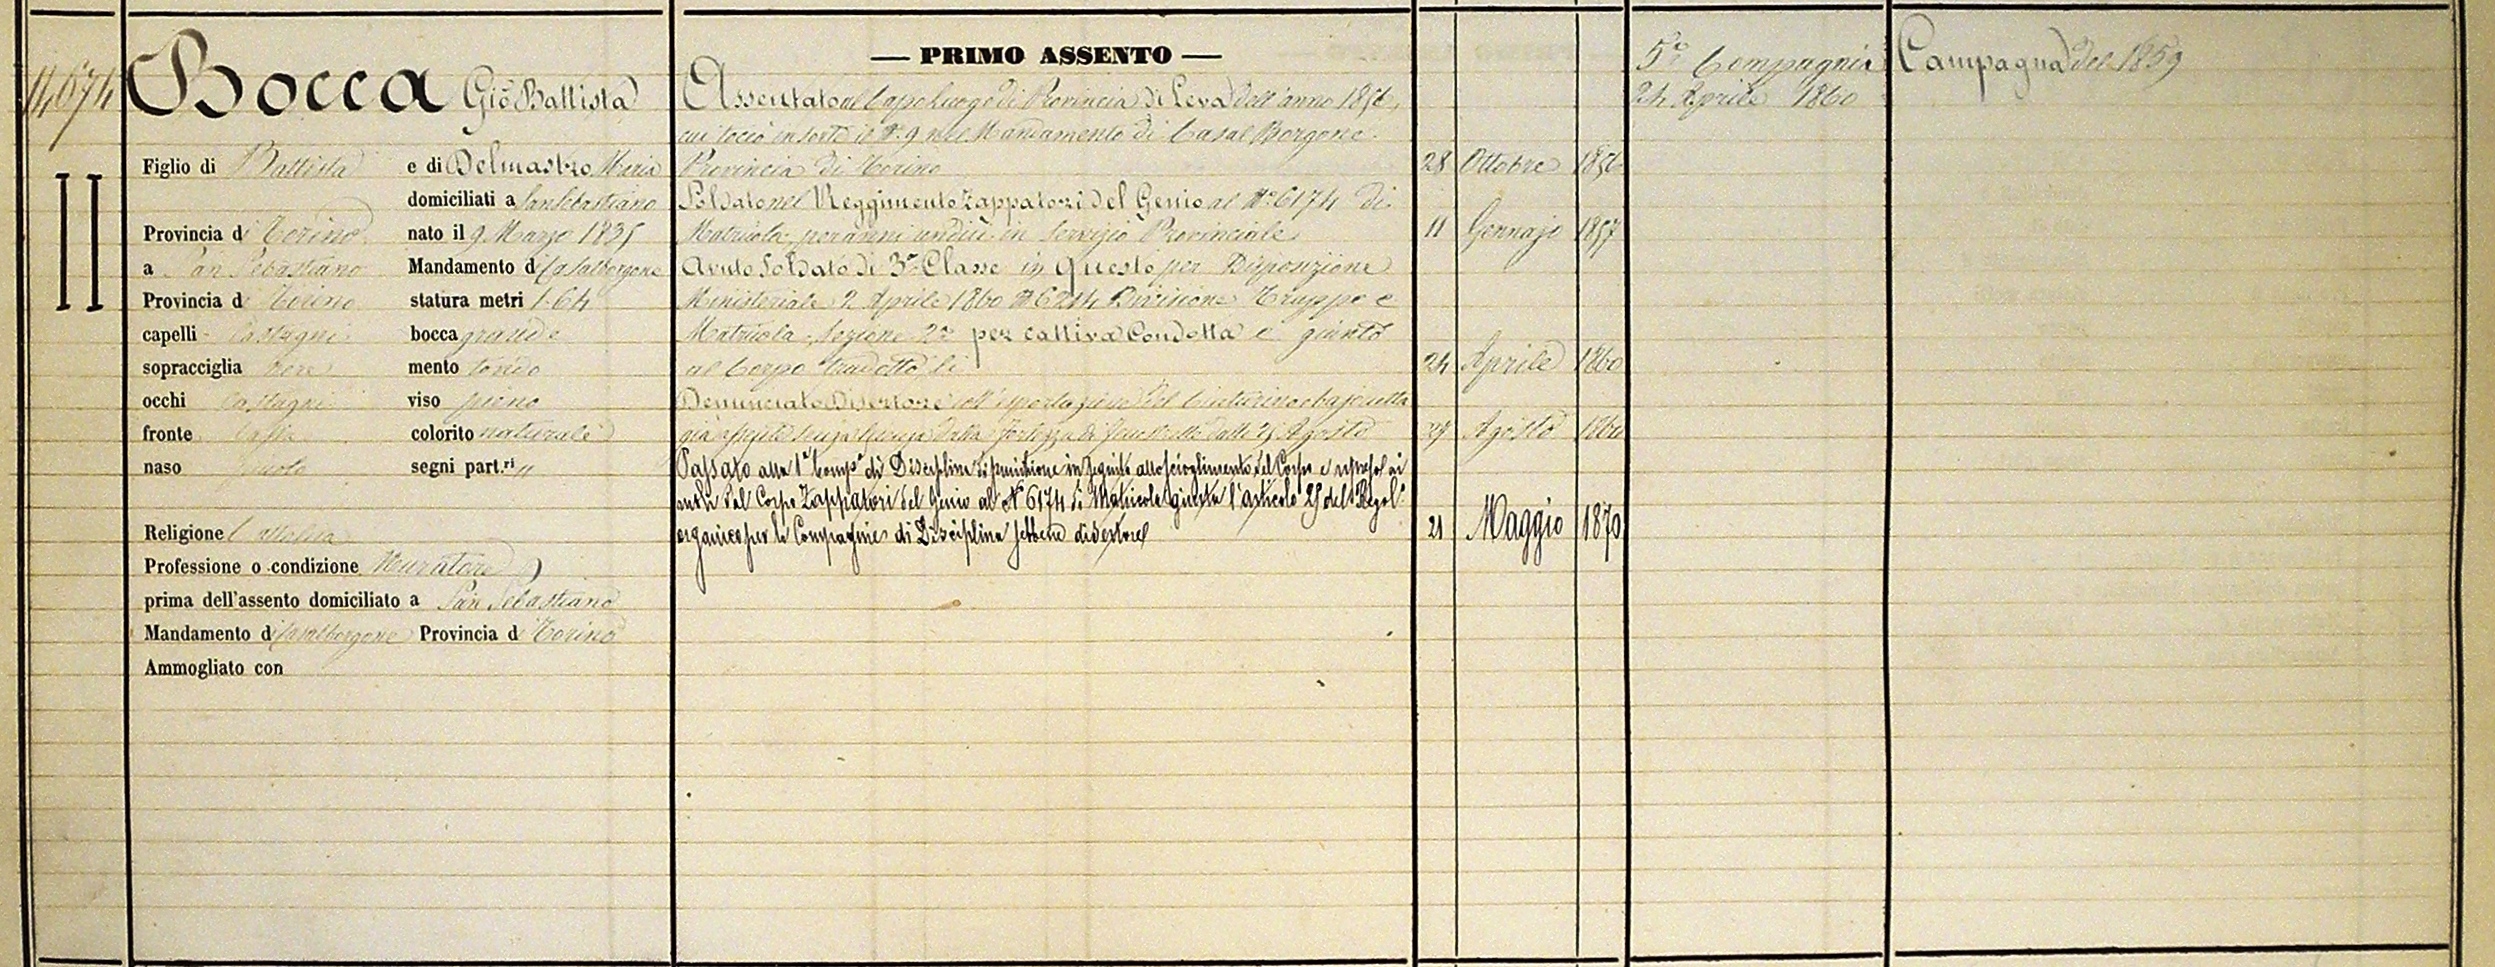 14674
Bocca Gio Battista
Figlio di Battista e di Delmastro Maria
domiciliati a San Sebastiano
Provincia di Torino nato il 9 Marzo 1835
a San Sebastiano Mandamento di Casalborgone
Provincia di Torino statura metri 1.64
capelli Castagni bocca grande
sopracciglia nere mento tondo
occhi Castagni viso pieno
fronte bassa colorito naturale
naso segni part.ri "
Religione Cattolica
Professione o condizione Muratore
prima dell'assento domiciliato a San Sebastiano
Mandamento di Casalborgone Provincia di Torino
Ammogliato con
— PRIMO ASSENTO —
Assentato al Capo luogo di Provincia di Leva dell'anno 1856,
cui toccò in sorte il N. 9 nel Mandamento di Casal Borgone
Provincia di Torino 28 Ottobre 1856
Soldato nel Reggimento Zappatori del Genio al N.o 6174 di
Matricola per anni undici in Servizio Provinciale 11 Gennajo 1857
Avuto Soldato di 3a Classe in questo per Disposizione
Ministeriale 2 Aprile 1860 N 6244 Divisione Truppe e
Matricola, Sezione 2a per cattiva Condotta e giunto
al Corpo tradotto li 24 Aprile 1860
Denunciato Disertore coll'esportazione del Centurino e bajonetta
già assente senza licenza dalla fortezza di Fenestrelle dalli 25 Agosto 27 Agosto 1860
Passato alla 1a Compa di Disciplina di punizione in seguito allo scioglimento del Corpo e
dal Corpo Zappatori del Genio al N 6174 di Matricola giusta l'articolo 25 del Regol.o
organico per le Compagnie di Disciplina sebbene disertore 21 Maggio 1870
5a Compagnia
24 Aprile 1860
Campagna del 1859